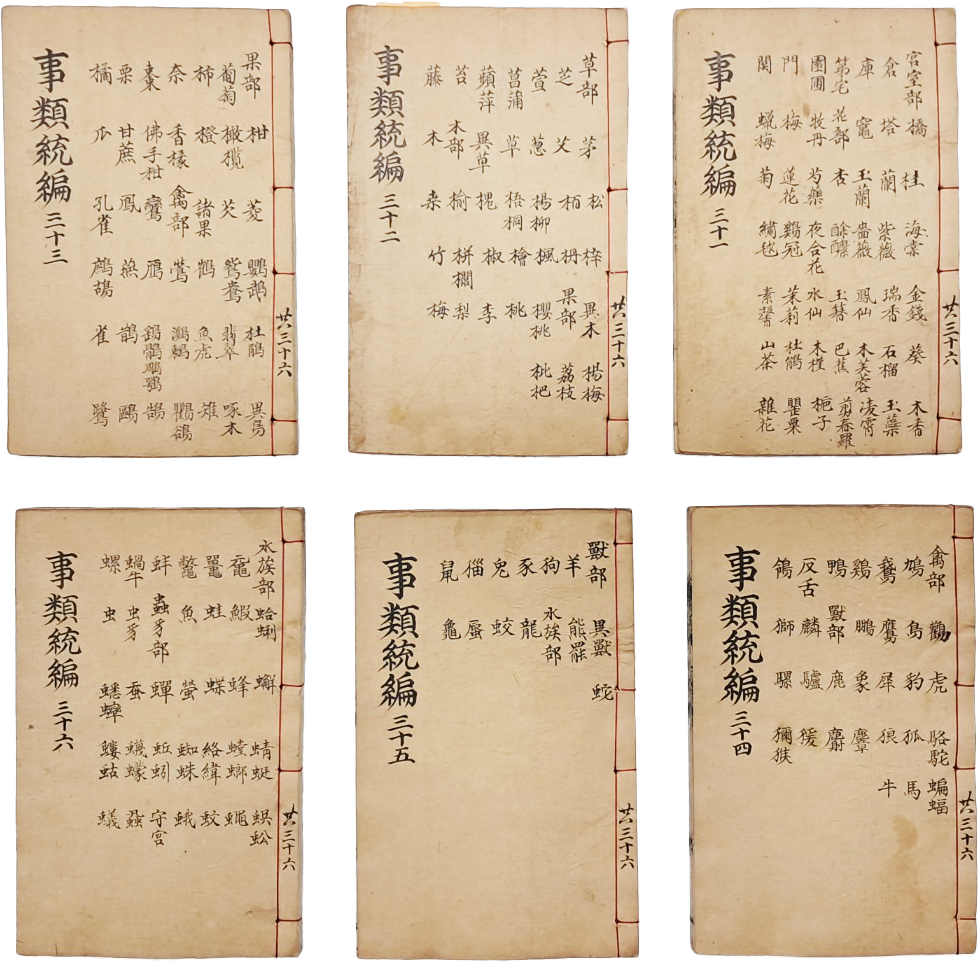 宮室部 橋 桂 海棠 金錢 葵 木香
倉 塔 蘭 紫薇 瑞香 石榴 玉蘂
庫 竈 玉蘭 薔薇 鳳仙 木芙蓉 凌霄
第宅 花部 杏 酴醾 玉簪 巴蕉 剪春羅
園圃 牧丹 芍藥 夜合花 水仙 木槿 梔子
門 梅 蓮花 鷄冠 茉莉 杜鵑 罌粟
関 蠟梅 菊 繡毬 素馨 山茶 雜花
事類統編 三十一
共三十六
草部 茅 松 梓 異木 楊梅
芝 艾 栢 枬 果部 荔枝
萱 蔥 楊柳 楓 櫻桃 枇杷
菖蒲 草 梧桐 檜 桃
蘋萍 異草 槐 椒 李
苔 木部 榆 栟櫚 梨
藤 木 桑 竹 梅
事類統編 三十二
共三十六
果部 柑 菱 鸚鵡 杜鵑 異鳥
葡萄 橄欖 芡 鴛鴦 翡翠 啄木
柿 橙 諸果 鶴 魚虎 雉
奈 香櫞 禽部 鶯 鸂鶒 鸜鵒
棗 佛手柑 鸞 鴈 鵠
栗 甘蔗 鳳 燕 鵲 鷗
橘 瓜 孔雀 鷓鴣 雀 鷺
事類統編 三十三
共三十六
禽部 鸛 虎 駱駝 蝙蝠
鳩 鳥 豹 狐 馬
鵞 鷹 犀 狼 牛
鷄 鵬 象 麞
鴨 獸部 鹿 麝
反舌 麟 驢 猨
鴿 獅 騾 獼猴
事類統編 三十四
共三十六
獸部 異獸 蛇
羊 熊羆
狗 水族部
豕 龍
兔 蛟
貓 蜃
鼠 龜
事類統編 三十五
共三十六
水族部 蛤蜊 蠏 蜻蜓 蜈蚣
黿 鰕 蜂 螳螂 蠅
鼉 蛙 蝶 絡緯 蚊
鼈 魚 螢 蜘蛛 蛾
蚌 蟲豸部 蟬 蚯蚓 守宮
蝸牛 虫豸 蚕 蠛蠓 蝨
螺 虫 蟋蟀 螻蛄 蟻
事類統編 三十六
共三十六